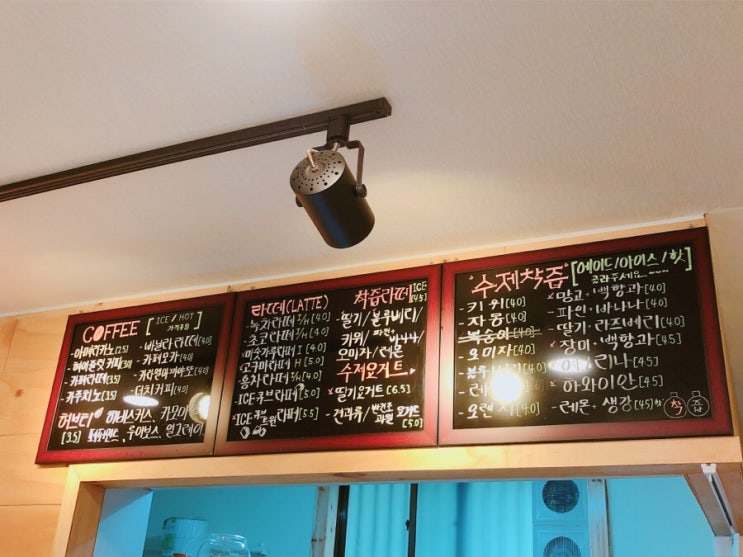 COFFEE [ICE / HOT
가격동일]
-아메리카노[2.5]
-헤이즐럿 커피[3.0]
-카페라떼[3.5]
-카푸치노[3.5]
-바닐라라떼[4.0]
-카페모카[4.0]
-카라멜마끼아또[4.0]
-더치커피[4.0]
허브티
[3.5]
히비스커스, 카모마일
페퍼민트, 루이보스, 얼그레이
라떼(LATTE)
-녹차라떼 I/H [4.0]
-초코라떼 I/H [4.0]
-미숫가루라떼 I [4.0]
-고구마라떼 H [5.0]
-홍차라떼 I/H [4.0]
-ICE큐브라떼[5.5]
착즙라떼 ICE
[4.5]
딸기/블루베리/
키위/파인+바나나/
오미자/레몬
수제요거트
딸기요거트 [6.5]
-견과류/반건조과일 요거트
[5.0]
"수제착즙" [에이드/아이스/핫]
골라주세요~
-키위[4.0]
-자몽[4.0]
-복숭아[4.0]
-오미자[4.0]
-오렌지[4.0]
-망고·백향과[4.0]
-파인·바나나[4.0]
-딸기·라즈베리[4.0]
-장미·백향과[4.5]
[4.5]
-하와이안[4.5]
-레몬+생강[4.5]
착 즙